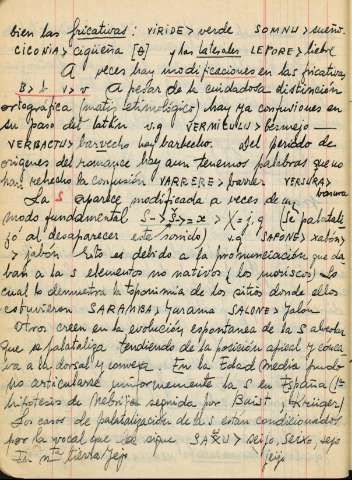 bien las fricativas: VIRIDE > verde SOMNU > sueño
CICONIA > cigüeña [θ] y las laterales LEPORE > liebre
A veces hay modificaciones en las fricativas
B > b V > v A pesar de la cuidadosa distinción
ortográfica (matiz etimológico) hay ya confusiones en
su paso del latín v.g VERMICULU > bermejo —
VERBACTUS > barvecho hoy barbecho. Del período de
orígenes del romance hay aun tenemos palabras que no
han rehecho la confusión VARRERE > barrer VERSURA >
basura
La S aparece modificada a veces de un
modo fundamental S- > š > = x > X = j, g (Se palatali
zó al desaparecer este sonido) v.g SAPONE > xabón >
> jabón Esto es debido a la pronunciación que da
ban a la S elementos no nativos (los moriscos) Lo
cual lo demuestra la toponimia de los sitios donde ellos
estuvieron SARAMBA > Jarama SALONE > Jalón
Otros creen en la evolución espontanea de la S
que se palataliza tendiendo de la posición apical y cónca
va a la dorsal y convexa En la Edad Media pudo
no articularse uniformemente la S en España (1ª
hipótesis de Nebrija seguida por Baist, Krüger)
Los casos de palatalización de la s están condicionados
por la vocal que le sigue SAXU > seijo, seixo, sejo
En nta tierra/jejo jeijo